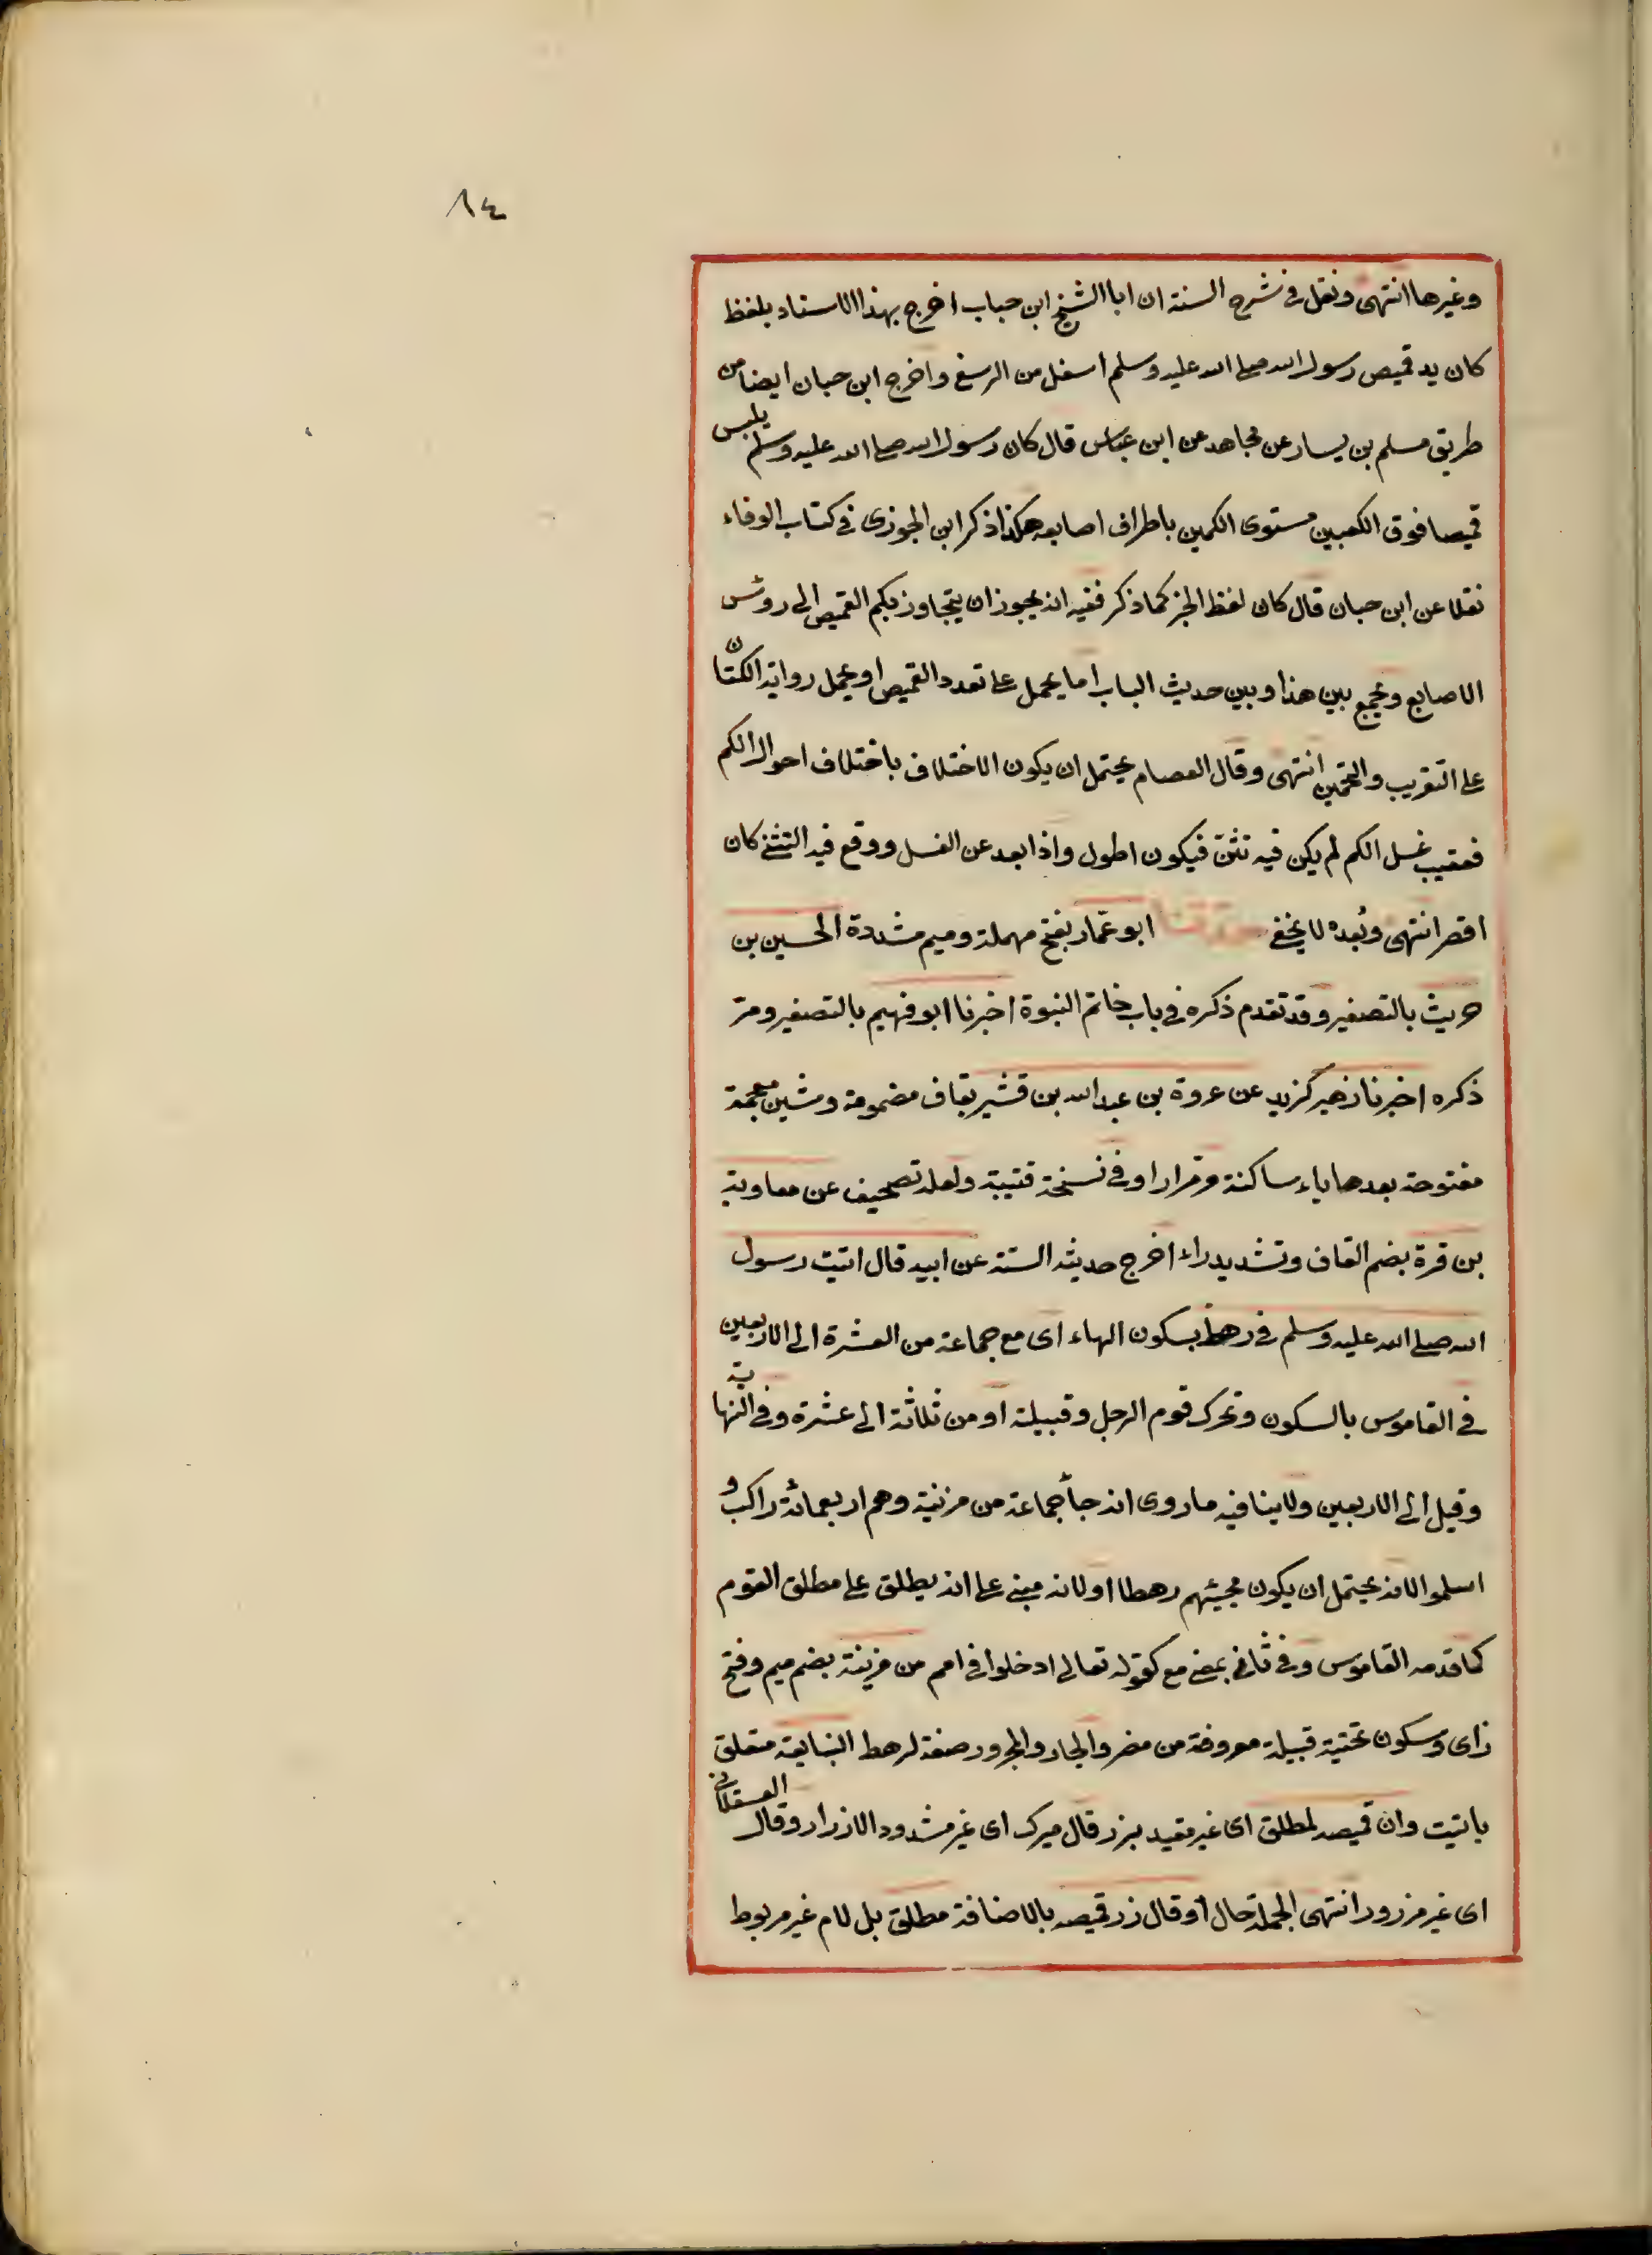 ٨٤
وغيرها انتهى ونقل فى شرح السنة ان ابا الشيخ ابن حباب اخرج بهذا الاسناد بلفظ
كان يد قميص رسول الله صلى الله عليه وسلم اسفل من الرسغ واخرج ابن حبان ايضا من
طريق مسلم بن يسار عن مجاهد عن ابن عباس قال كان رسول الله صلى الله عليه وسلم يلبس
قميصا فوق الكعبين مستوى الكمين باطراف اصابعه هكذا ذكر ابن الجوزى فى كتاب الوفاء
نقلا عن ابن حبان قال كان لفظ الخبر كما ذكر ففيه انه يجوز ان يتجاوز بكم القميص الى روئس
الاصابع ويجمع بين هذا وبين حديث الباب اما يحمل على تعدد القميص او يحمل رواية الكتّان
على التقريب والتخمين انتهى وقال العصام يحتمل ان يكون الاختلاف باختلاف احوال الكم
فعقيب غسل الكم لم يكن فيه تثن فيكون اطول واذا بعد عن الغسل ووقع فيه التثنى كان
اقصر انتهى وبُعده لا يخفى حدثنا ابو عمّار بفتح مهملة وميم مشددة الحسين بن
حريث بالتصغير وقد تقدم ذكره فى باب خاتم النبوة اخبرنا ابو فهيم بالتصغير ومرّ
ذكره اخبرنا زهير كزبير عن عروة بن عبد الله بن قشير بقاف مضمومة وشين معجمة
مفتوحة بعدها ياء ساكنة ومرّ ارا وفى نسخة قتيبة ولعله تصحيف عن معاوية
بن قرة بضم القاف وتشديد راء اخرج حديثه الستة عن ابيه قال اتيت رسول
الله صلى الله عليه وسلم فى رهط بسكون الهاء اى مع جماعة من العشرة الى الاربعين
فى القاموس بالسكون وتحرك قوم الرجل وقبيلته او من ثلاثة الى عشرة وفى النهاية
وقيل الى الاربعين ولا ينافيه ما روى انه جأ جماعة من مزنية وهم اربعمائة راكب و
اسلموا لانه يحتمل ان يكون مجيئهم رهطا او لانه مبنى على انه يطلق على مطلق القوم
كما قدمه القاموس وفى ثانى بمعنى مع كقوله تعالى ادخلوا فى امم من مزينة بضم ميم وفتح
زاى وسكون تحتية قبيلة معروفة من مضر والجار والمجرور صفة لرهط النبايعه متعلق
باتيت وان قميصه لمطلق اى غير مقيد بزر قال ميرك اى غير مشدود الازرار وقال العسقلانى
اى غير مزرور انتهى الجملة حال او قال زر قميصه بالاضافة مطلق بل لام غير مربوط